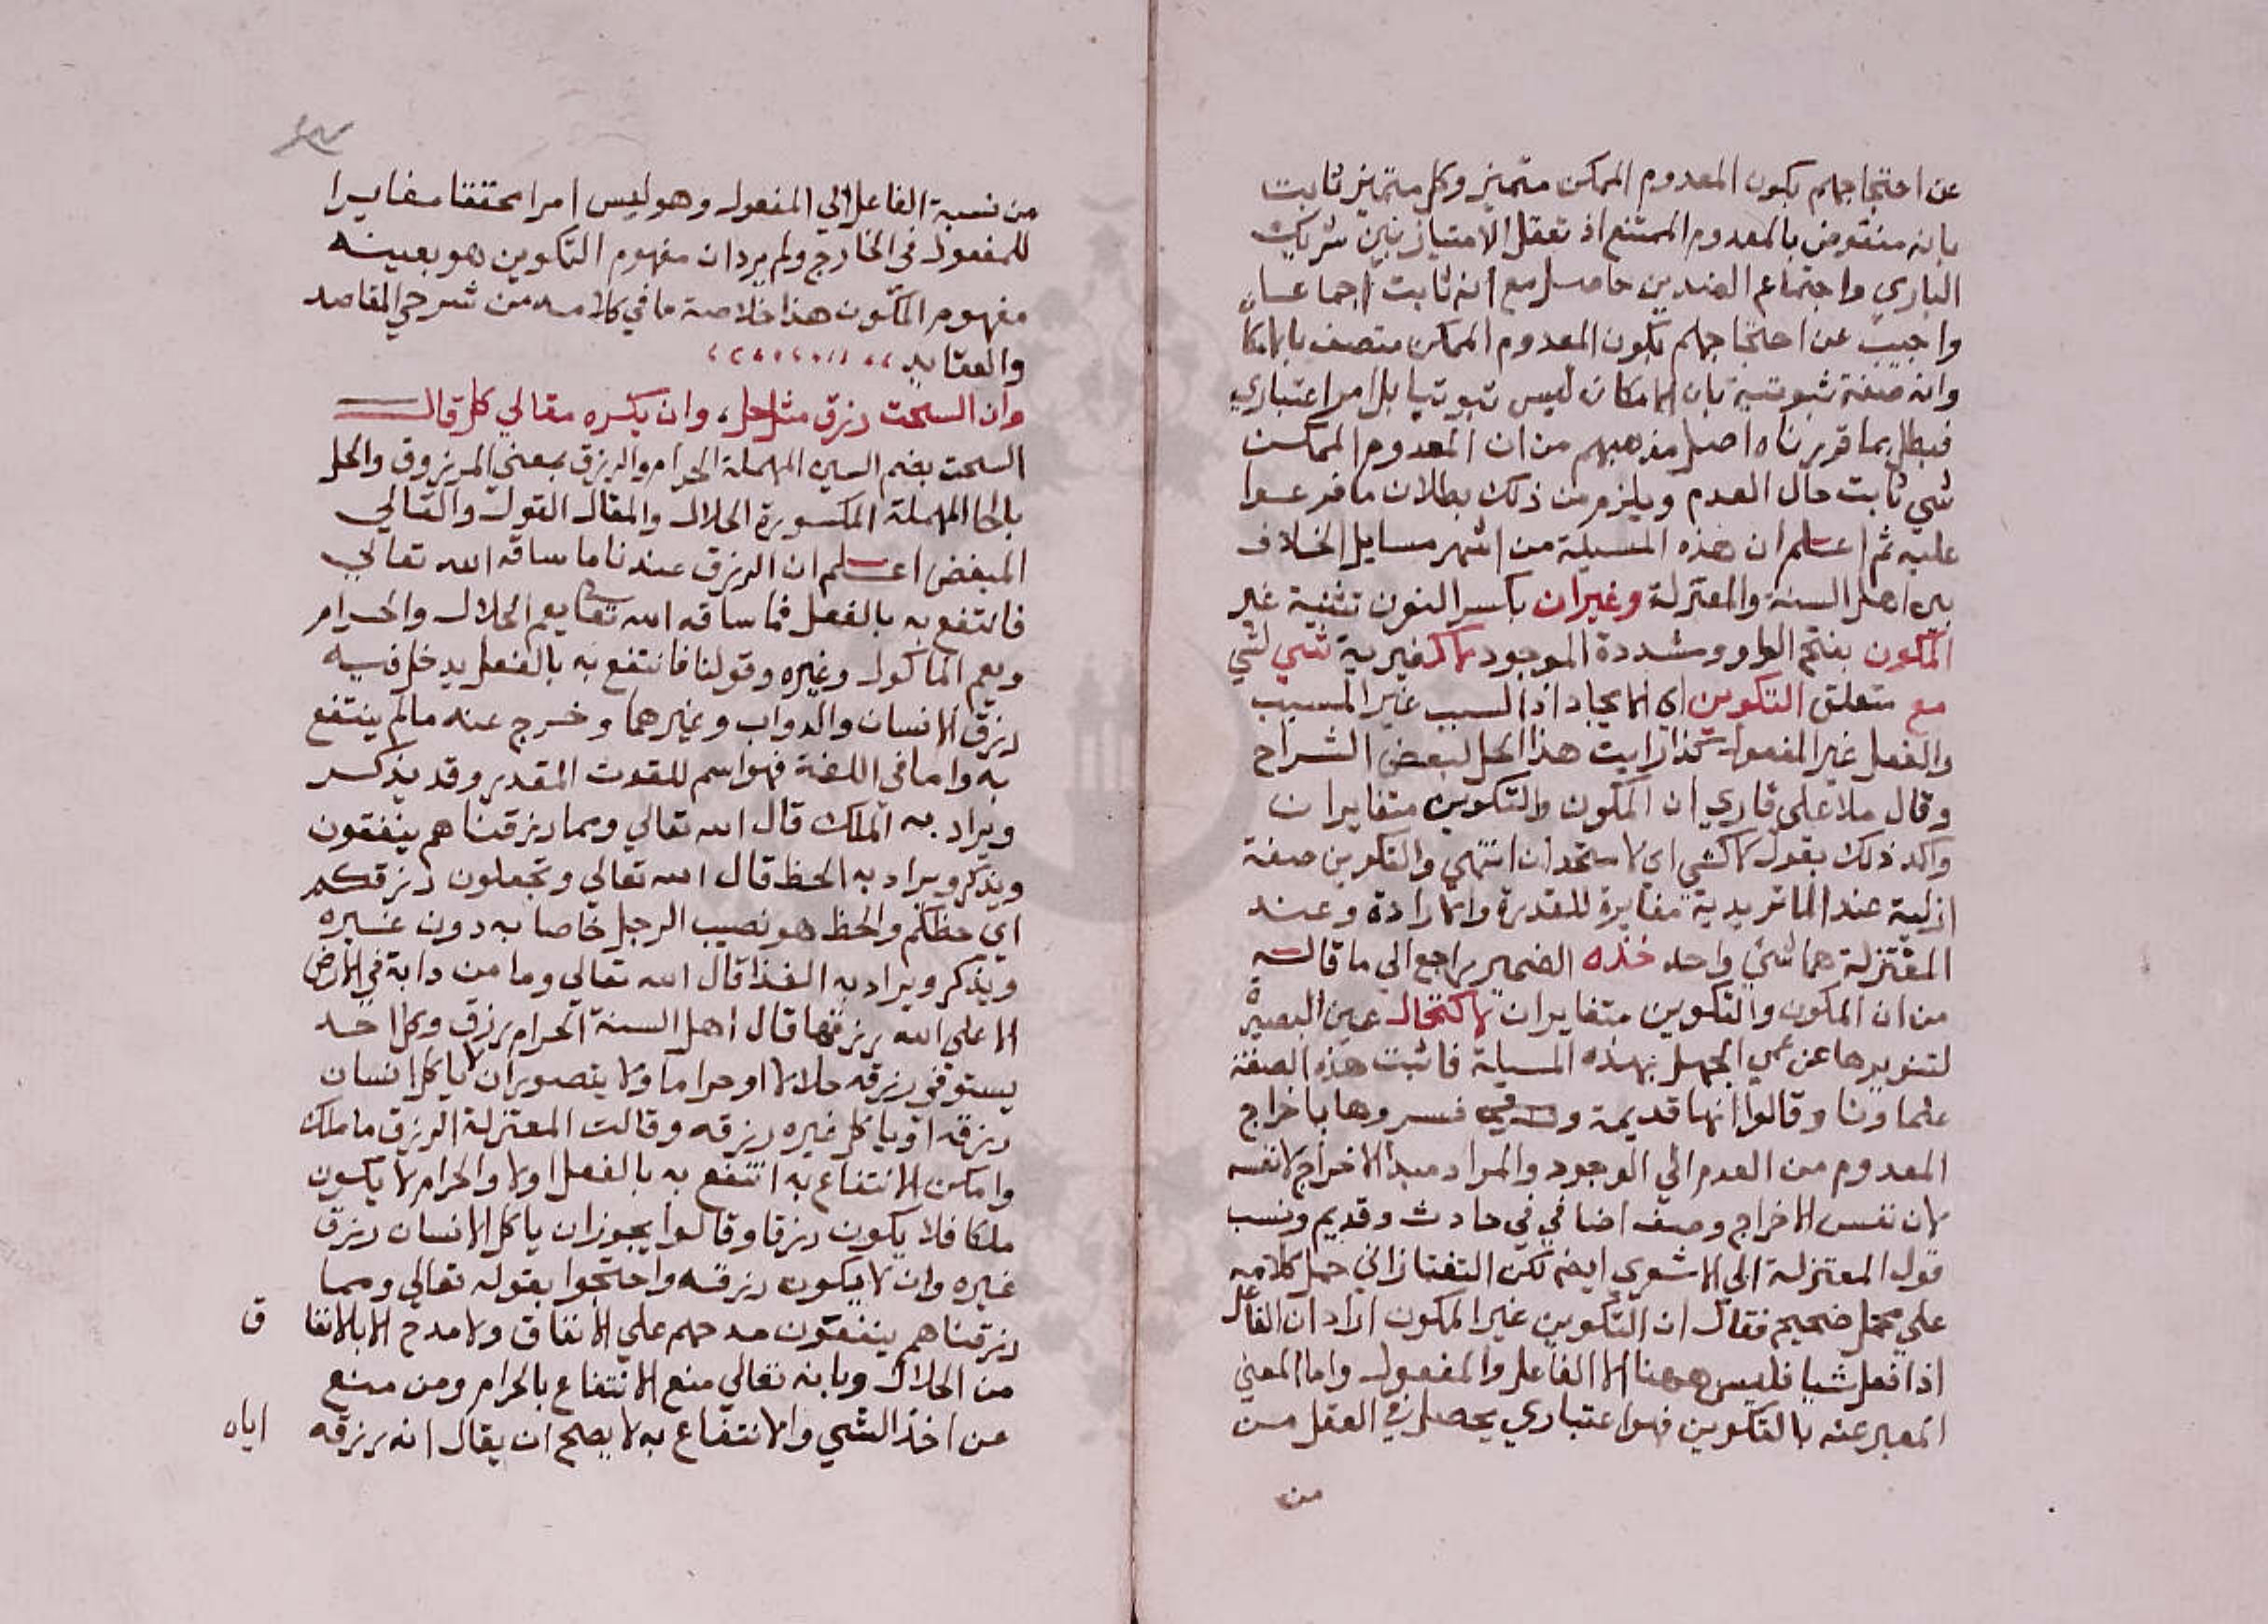 عن احتجاجهم بكون المعدوم الممكن متميز وكل متميز ثابت
بانه منقوض بالمعدوم الممتنع اذ تعقل الامتياز بين شريك
الباري واجتماع الضدين حاصل مع انه ثابت اجماعا
واجيب عن احتجاجهم بكون المعدوم الممكن متصف بالامكا
وانه صفة ثبوتية بان الامكان ليس ثبوتيا بل امر اعتباري
فبطل بما قررناه اصل مذهبهم من ان المعدوم الممكن
شي ثابت حال العدم ويلزم من ذلك بطلان ما فرعوا
عليه ثم اعلم ان هذه المسيلة من اشهر مسايل الخلاف
بين اهل السنة والمعتزلة وغيران بكسر النون تثنية غير
المكون بفتح الواو ومشددة الموجود لا كغيرية شي لشي
مع متعلق التكوين اي الايجاد اذ السبب غير المسبب
والفعل غير المفعول كذا رايت هذا الحل لبعض الشراح
وقال ملا علي قاري ان المكون والتكوين متغايران
واكد ذلك بقوله لا كشي اي لا متحدان انتهي والتكوين صفة
ازلية عند الماتريدية مغايرة للقدرة والارادة وعند
المعتزلة هما شي واحد خذه الضمير يراجع الي ما قاله
من ان المكون والتكوين متغايران لاكتحال عين البصيرة
لتنويرها عن عمي الجهل بهذه المسيلة فاثبت هذه الصفة
علماونا وقالوا انها قديمة وفسروها باخراج
المعدوم من العدم الي الوجود والمراد مبدا الاخراج لا نفسه
لان نفس الاخراج وصف اضافي في حادث وقديم ونسب
قول المعتزلة الي الاشعري ايضا لكن التفتازاني حمل كلامه
علي محمل صحيح فقال ان التكوين غير المكون اراد ان الفاعل
اذا فعل شيا فليس ههنا الا الفاعل والمفعول واما المعني
المعبر عنه بالتكوين فهو اعتباري يحصل في العقل من
من
من نسبة الفاعل الي المفعول وهو ليس امرا محققا مغايرا
للمفعول في الخارج ولم يرد ان مفهوم التكوين هو بعينه
مفهوم المكون هذا خلاصة ما في كلامه من شرحي المقاصد
والعقايد
وان السحت رزق مثل حل، وان يكره مقالي كل قال
السحت بضم السين المهملة الحرام والرزق بمعني المرزوق والحل
بالحا المهملة المكسورة الحلال والمقال القول والقالي
المبغض اعلم ان الرزق عندنا ما ساقه الله تعالي
فانتفع به بالفعل فما ساقه الله تعا يعم الحلال والحرام
ويعم الماكول وغيره وقولنا فانتفع به بالفعل يدخل فيه
رزق الانسان والدواب وغيرهما وخرج عنه مالم ينتفع
به واما في اللغة فهو اسم للقوت المقدر وقد يذكر
ويراد به الملك قال الله تعالي ومما رزقناهم ينفقون
ويذكر ويراد به الحظ قال الله تعالي وتجعلون رزقكم
اي حظكم والحظ هو نصيب الرجل خاصا به دون غيره
ويذكر ويراد به الغذا قال الله تعالي وما من دابة في الارض
الا علي الله رزقها قال اهل السنة الحرام رزق وكل احد
يستوفي رزقه حلالا او حراما ولا يتصور ان لا ياكل انسان
رزقه او ياكل غيره رزقه وقالت المعتزلة الرزق ما ملك
وامكن الانتفاع به انتفع به بالفعل اولا والحرام لا يكون
ملكا فلا يكون رزقا وقالوا يجوز ان ياكل الانسان رزق
غيره وان لا يكون رزقه واحتجوا بقوله تعالي ومما
رزقناهم ينفقون مدحهم علي الانفاق ولا مدح الا بالانفا ق
من الحلال وبانه تعالي منع الانتفاع بالحرام ومن منع
من اخذ الشي والانتفاع به لا يصح ان يقال انه رزقه اياه